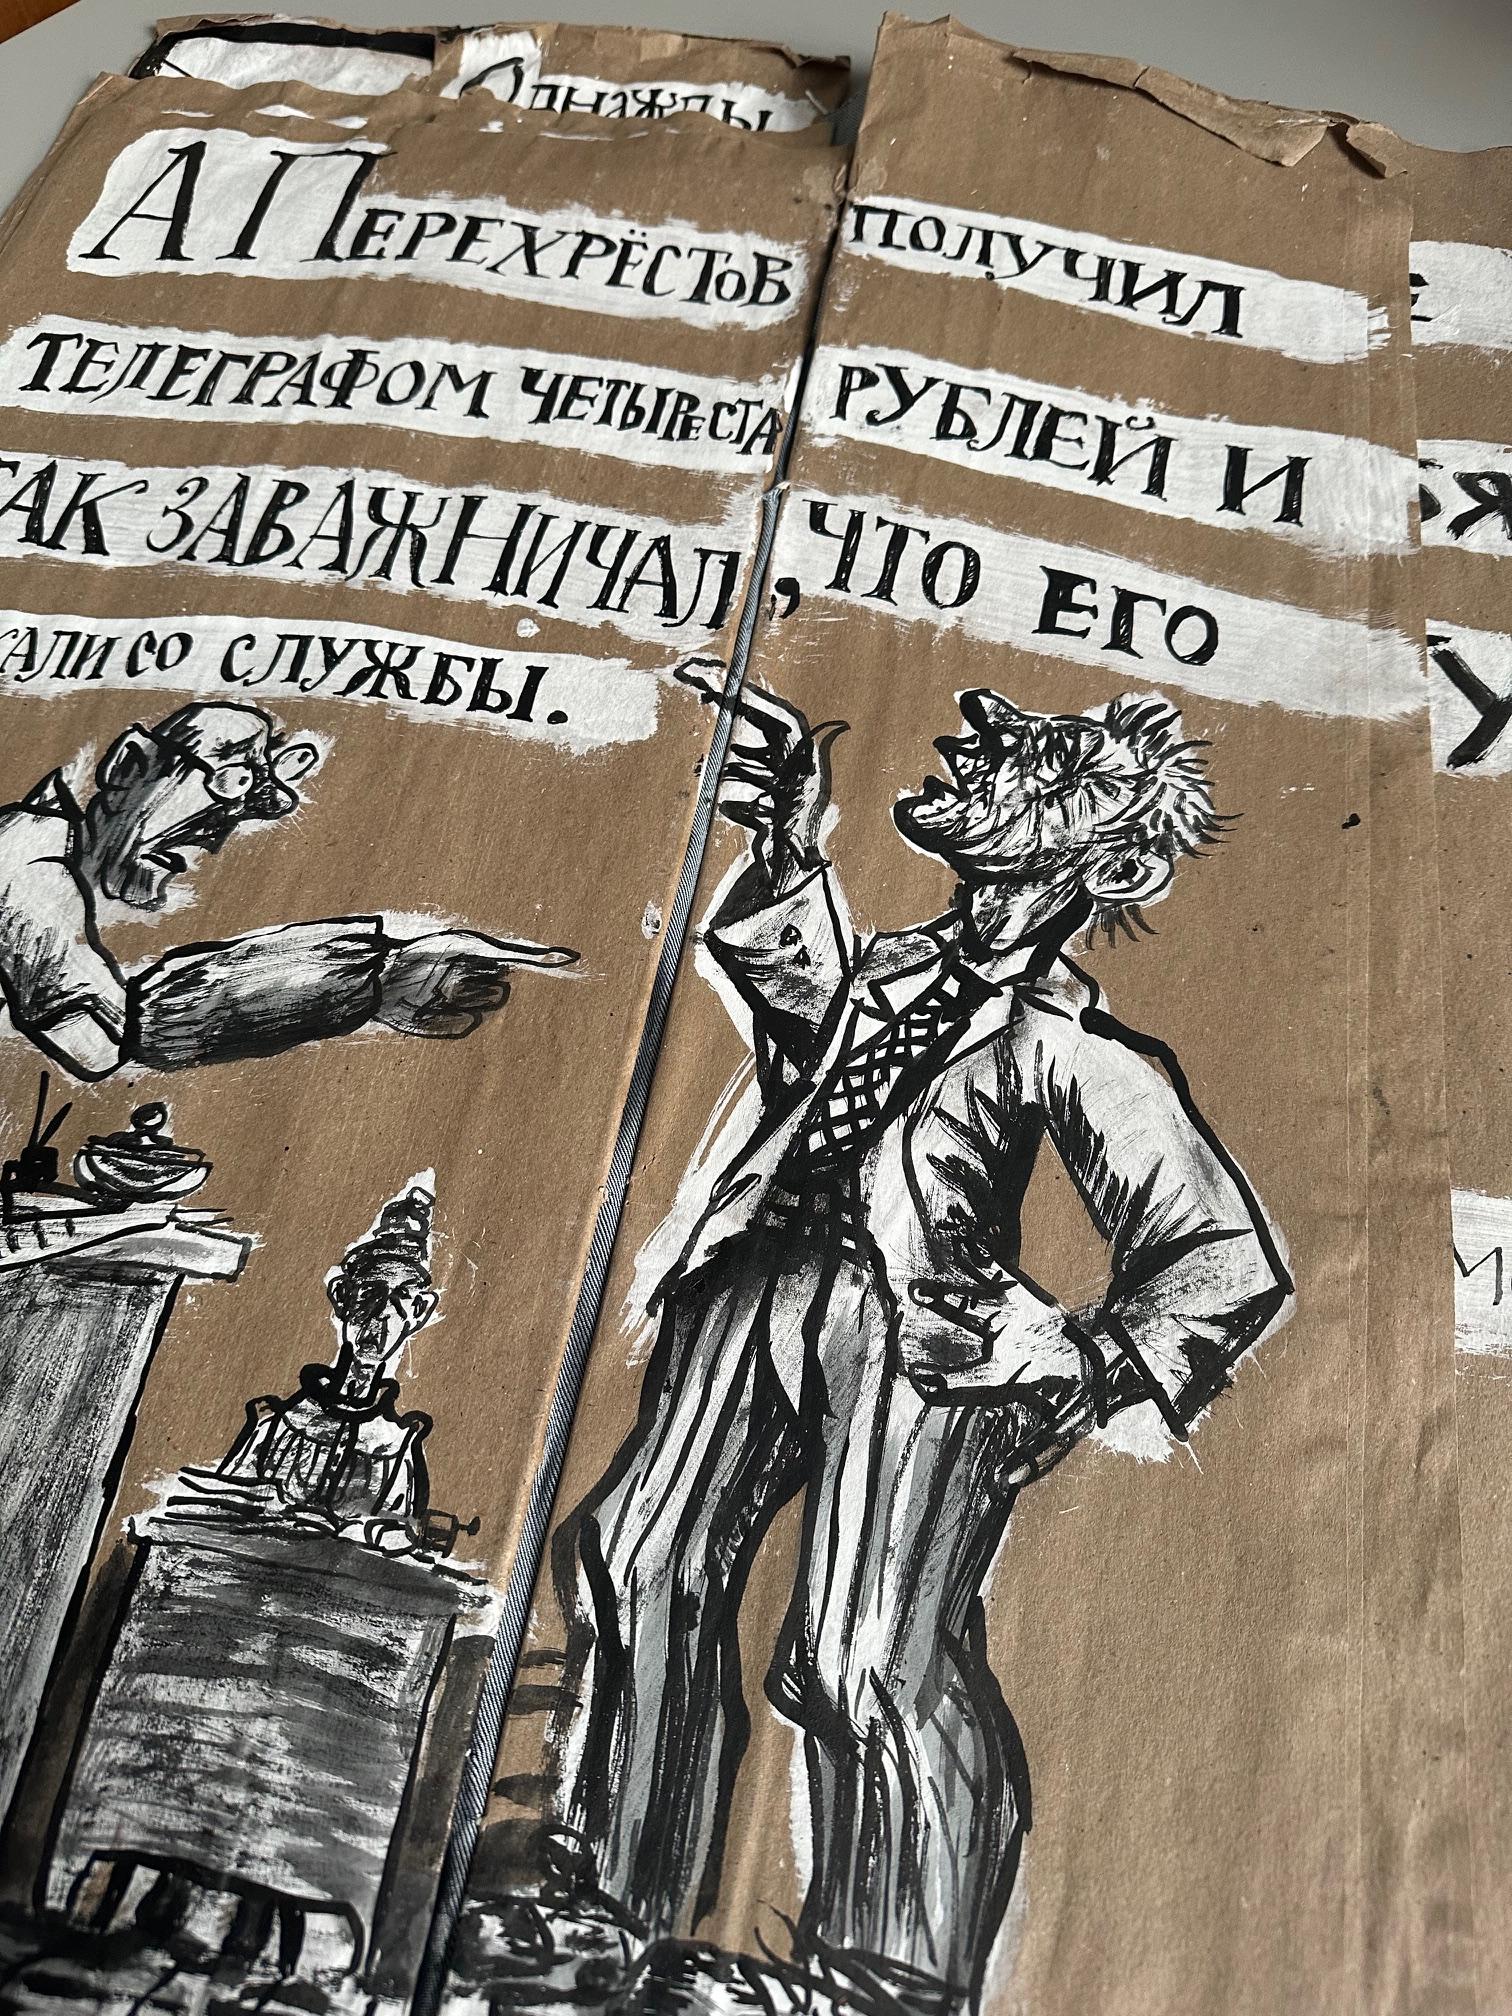 Однажды
А Перехрёстов получил
телеграфом четыреста рублей и
так заважничал, что его
кали со службы.